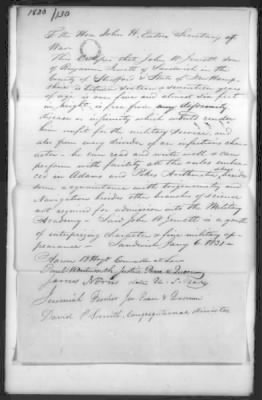 1830/130
To the Hon John H. Eaton Secretary of
War
This Certifies that John W. Jewett son
of Benjamin Jewett of Sandwich in the
County of Strafford & State of New Hamp
shire is between sixteen & seventeen years
of age is now five and almost six feet
in height, is free from any deformity
disease or infirmity which would render
him unfit for the military service, and
also from every disorder of an infectious char
acter - he can read and write well & can
perform with facility all the rules embra
ced in Adams and Pikes Arithmetic, besides
some acquaintance with trigonometry and
Navigation besides other branches of science
not required for admission into the Military
Academy - Said John W. Jewett is a youth
of enterprizing character & fine military ap
pearance - Sandwich Jany 6 1831
Aaron B Hoyt Counsellor at Law
Paul Wentworth Justice Peace & Quorum
James Norris late U. S. Navy
Jeremiah Jus Peace & Quorum
David P. Smith, Congregational Minister